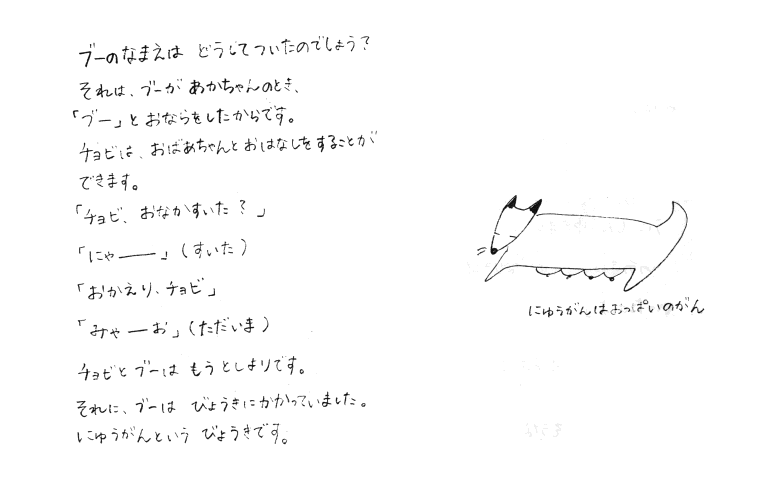 ブーのなまえは どうしてついたのでしょう?
それは、ブーが あかちゃんのとき、
「ブー」と おならをしたからです。
チョビは、おばあちゃんと おはなしをすることが
できます。
「チョビ、おなかすいた?」
「にゃ――」(すいた)
「おかえり、チョビ」
「みゃーお」(ただいま)
チョビと ブーは もうとしよりです。
それに、ブーは びょうきにかかっていました。
にゅうがんという びょうきです。
にゅうがんはおっぱいのがん